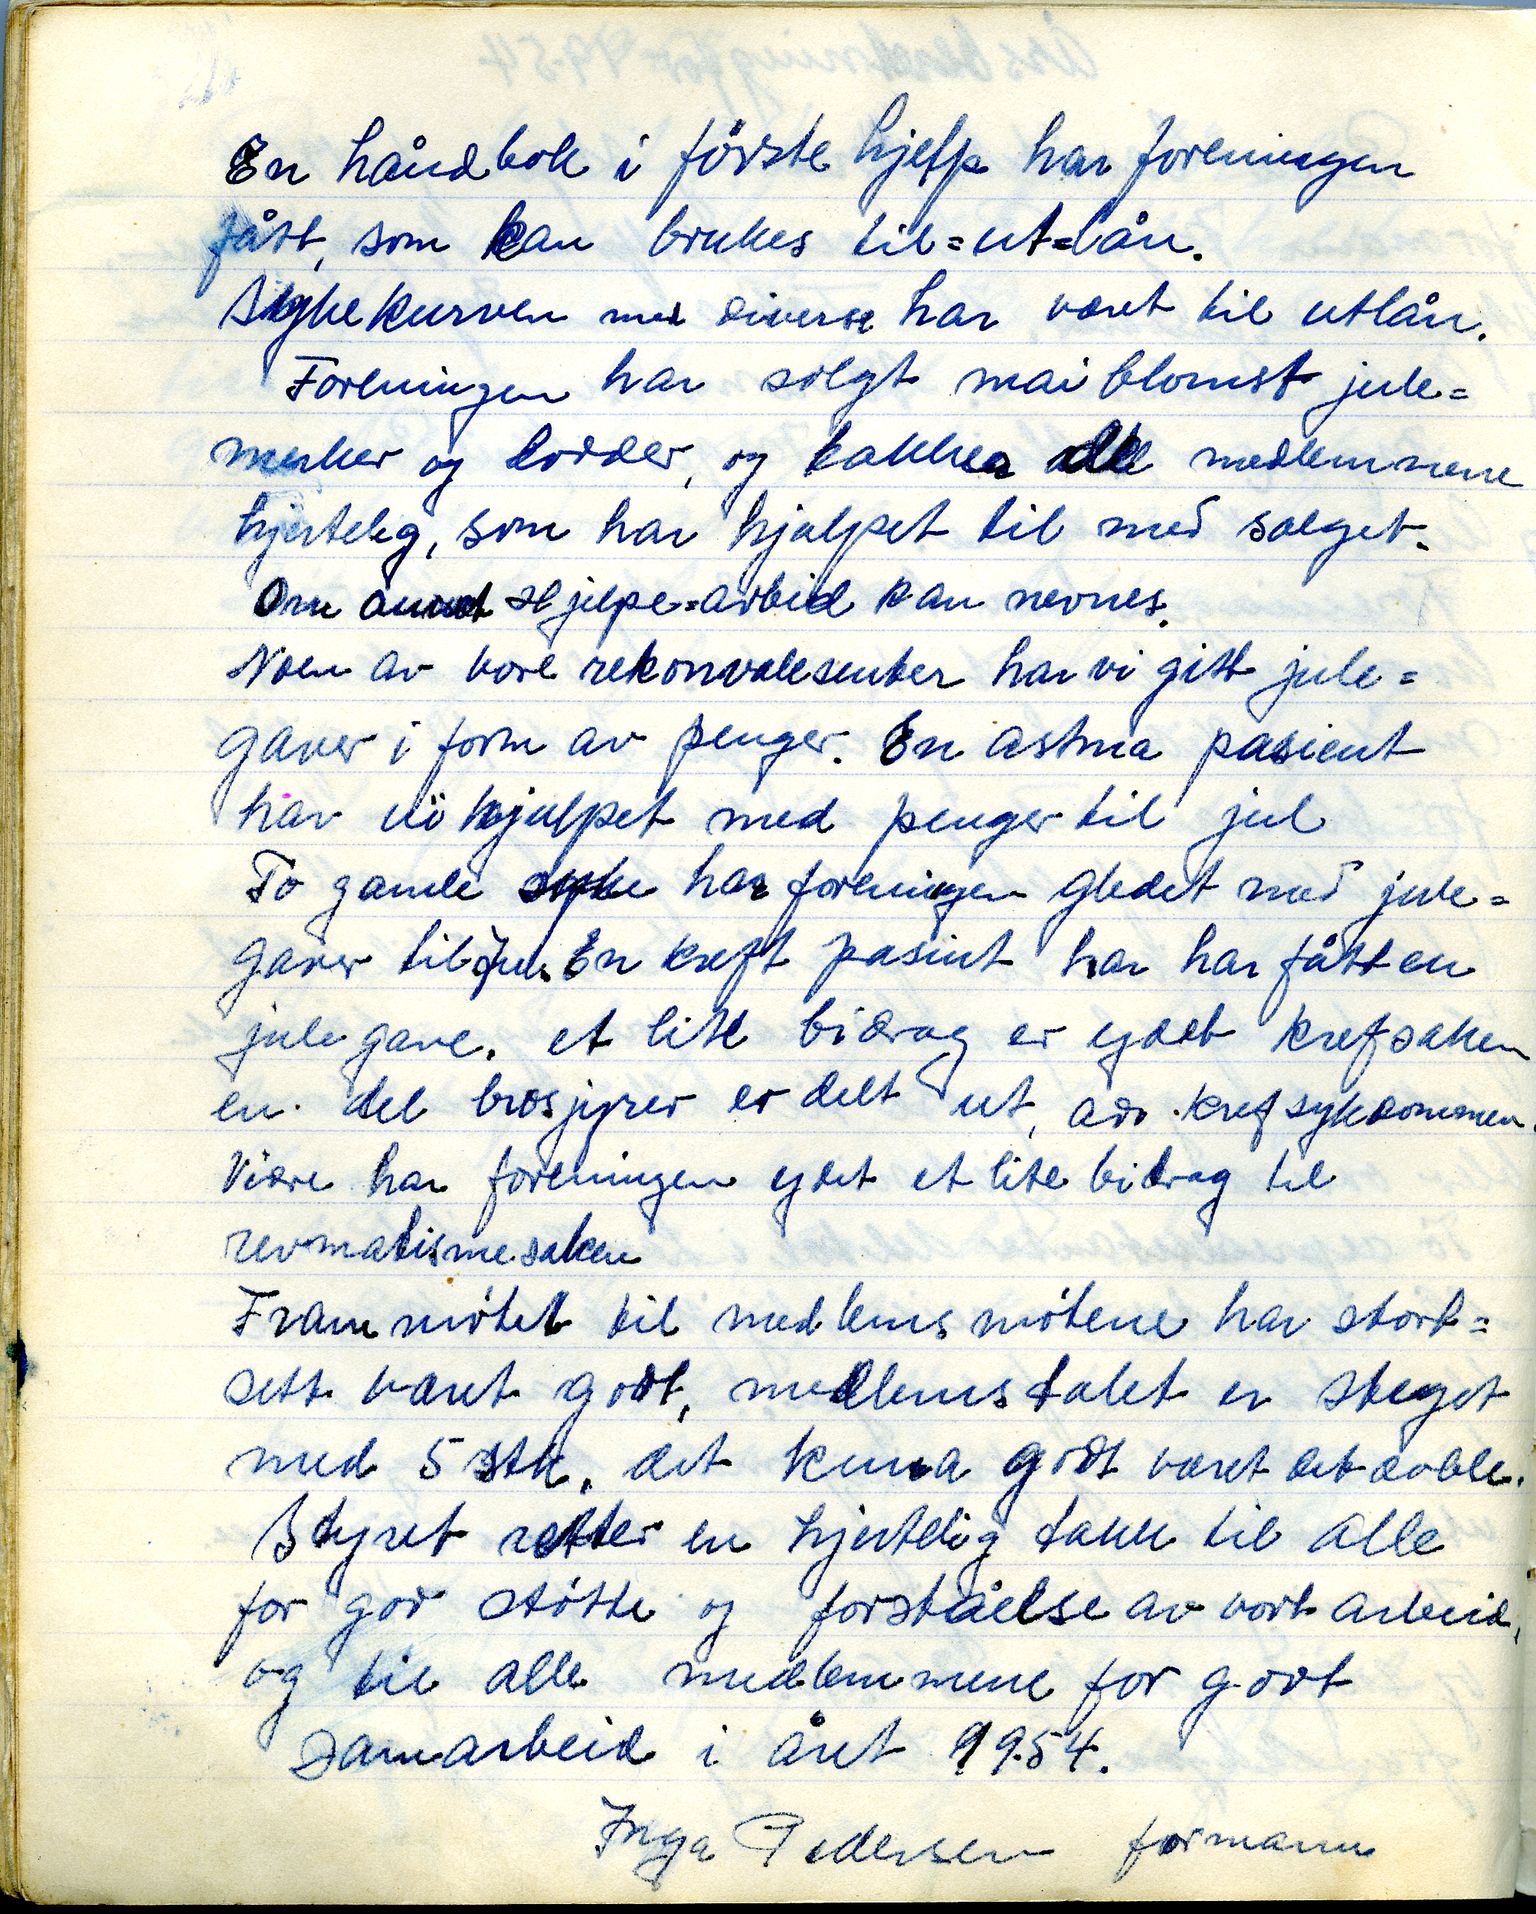 En håndbok i förste hjelp har foreningen
fått, som kan brukes til=ut=lån.
Sykekurven med diverse har været til utlån.
Foreningen har solgt maiblomst jule=
merker og lodder, og takker alle medlemmene
hjertelig, som har hjulpet til med salget.
Om annet Hjelpe=arbeid kan nevnes.
Noen av vore rekonvalesenter har vi gitt jule=
gaver i form av penger. En astma pasient
har vi hjulpet med penger til jul
To gamle syke har foreningen gledet med jule=
gaver til Jul. En kreft pasient har har fått en
julegave. et lite bidrag er ydet krefsaken
en del brosjyrer er delt ut, krefsykdommen.
Videre har foreningen ydet et lite bidrag til
revmatismesaken
Frammötet til medlemsmötene har stort=
sett været godt, medlemstalet er steget
med 5 stk. det kunna godt været det doble.
Styret retter en hjertelig takk til alle
for god stötte og forståelse av vort arbeid,
og til alle medlemmene for godt
samarbeid i året 1954.
Inga Pedersen formann